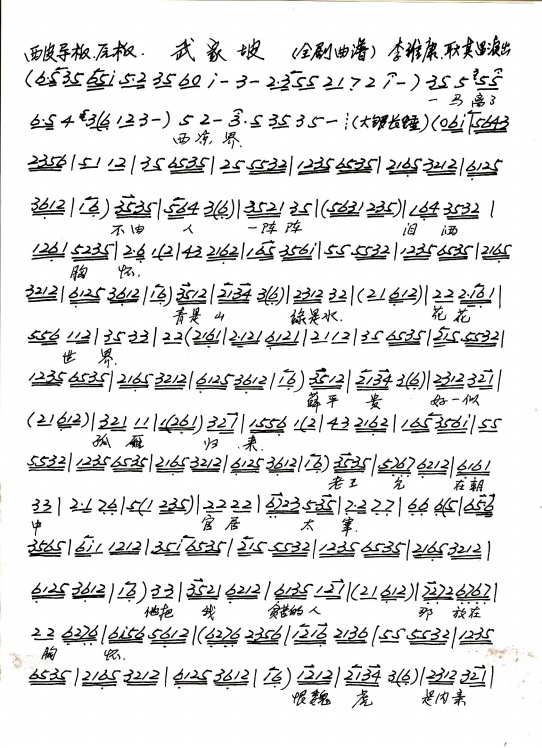 西皮导板.原板. 武家坡 (全剧曲谱) 李维康.耿其昌演出
(6·535 6i5i 5·2 35 60 i - 3 - 2·355 2172 i -) 35 5 55
一马离了
6·5 4 3(6 123-) 5 2 - 3·5 35 35 - (大锣长锤)(06i 5643
西凉界.
2356|51 12|35 6535|25 5532|1235 6535|2165 3212|6125
3612|16) 3535|564 3(6)|3521 35|(5631 235)|164 3532|
不由人 一阵阵 泪洒
1261 5235|2·6 1(2|43 2162|165 356i|55 5532|1235 6535|2165
胸怀.
3212|6125 3612|16) 3512|2134 3(6)|2312 32|(21 612)|22 2·161|
青是山 绿是水. 花花
556 112|35 33|22 (2161|2·121 6121|2112|35 6535|215 5532|
世界.
1235 6535|2165 3212|6125 3612|16) 3512|2134 3(6)|2312 321|
薛平贵 好一似
(21 612)|321 11|1(261) 327|1556 1(2|43 2162|165 356i|55
孤雁归来.
5532|1235 6535|2165 3212|6125 3612|16) 3535|5767 6212|6161
老王允 在朝
33|2·1 76|5(1 235)|22 22|6723 535|7·2 27|66 6(5|656
中 官居太宰.
3565|6i1 1212|35i 6535|215 5532|1235 6535|2165 3212|
6125 3612|16) 33|3521 6212|6135 127|(21 612)|7272 6767|
他把我 贫苦的人 那放在
22 6276|6i56 5612|(6276 2356|1216 2136|55 5532|1235
胸怀.
6535|2165 3212|6125 3612|16) 1212|2134 3(6)|2312 321|
恨魏虎 是内亲